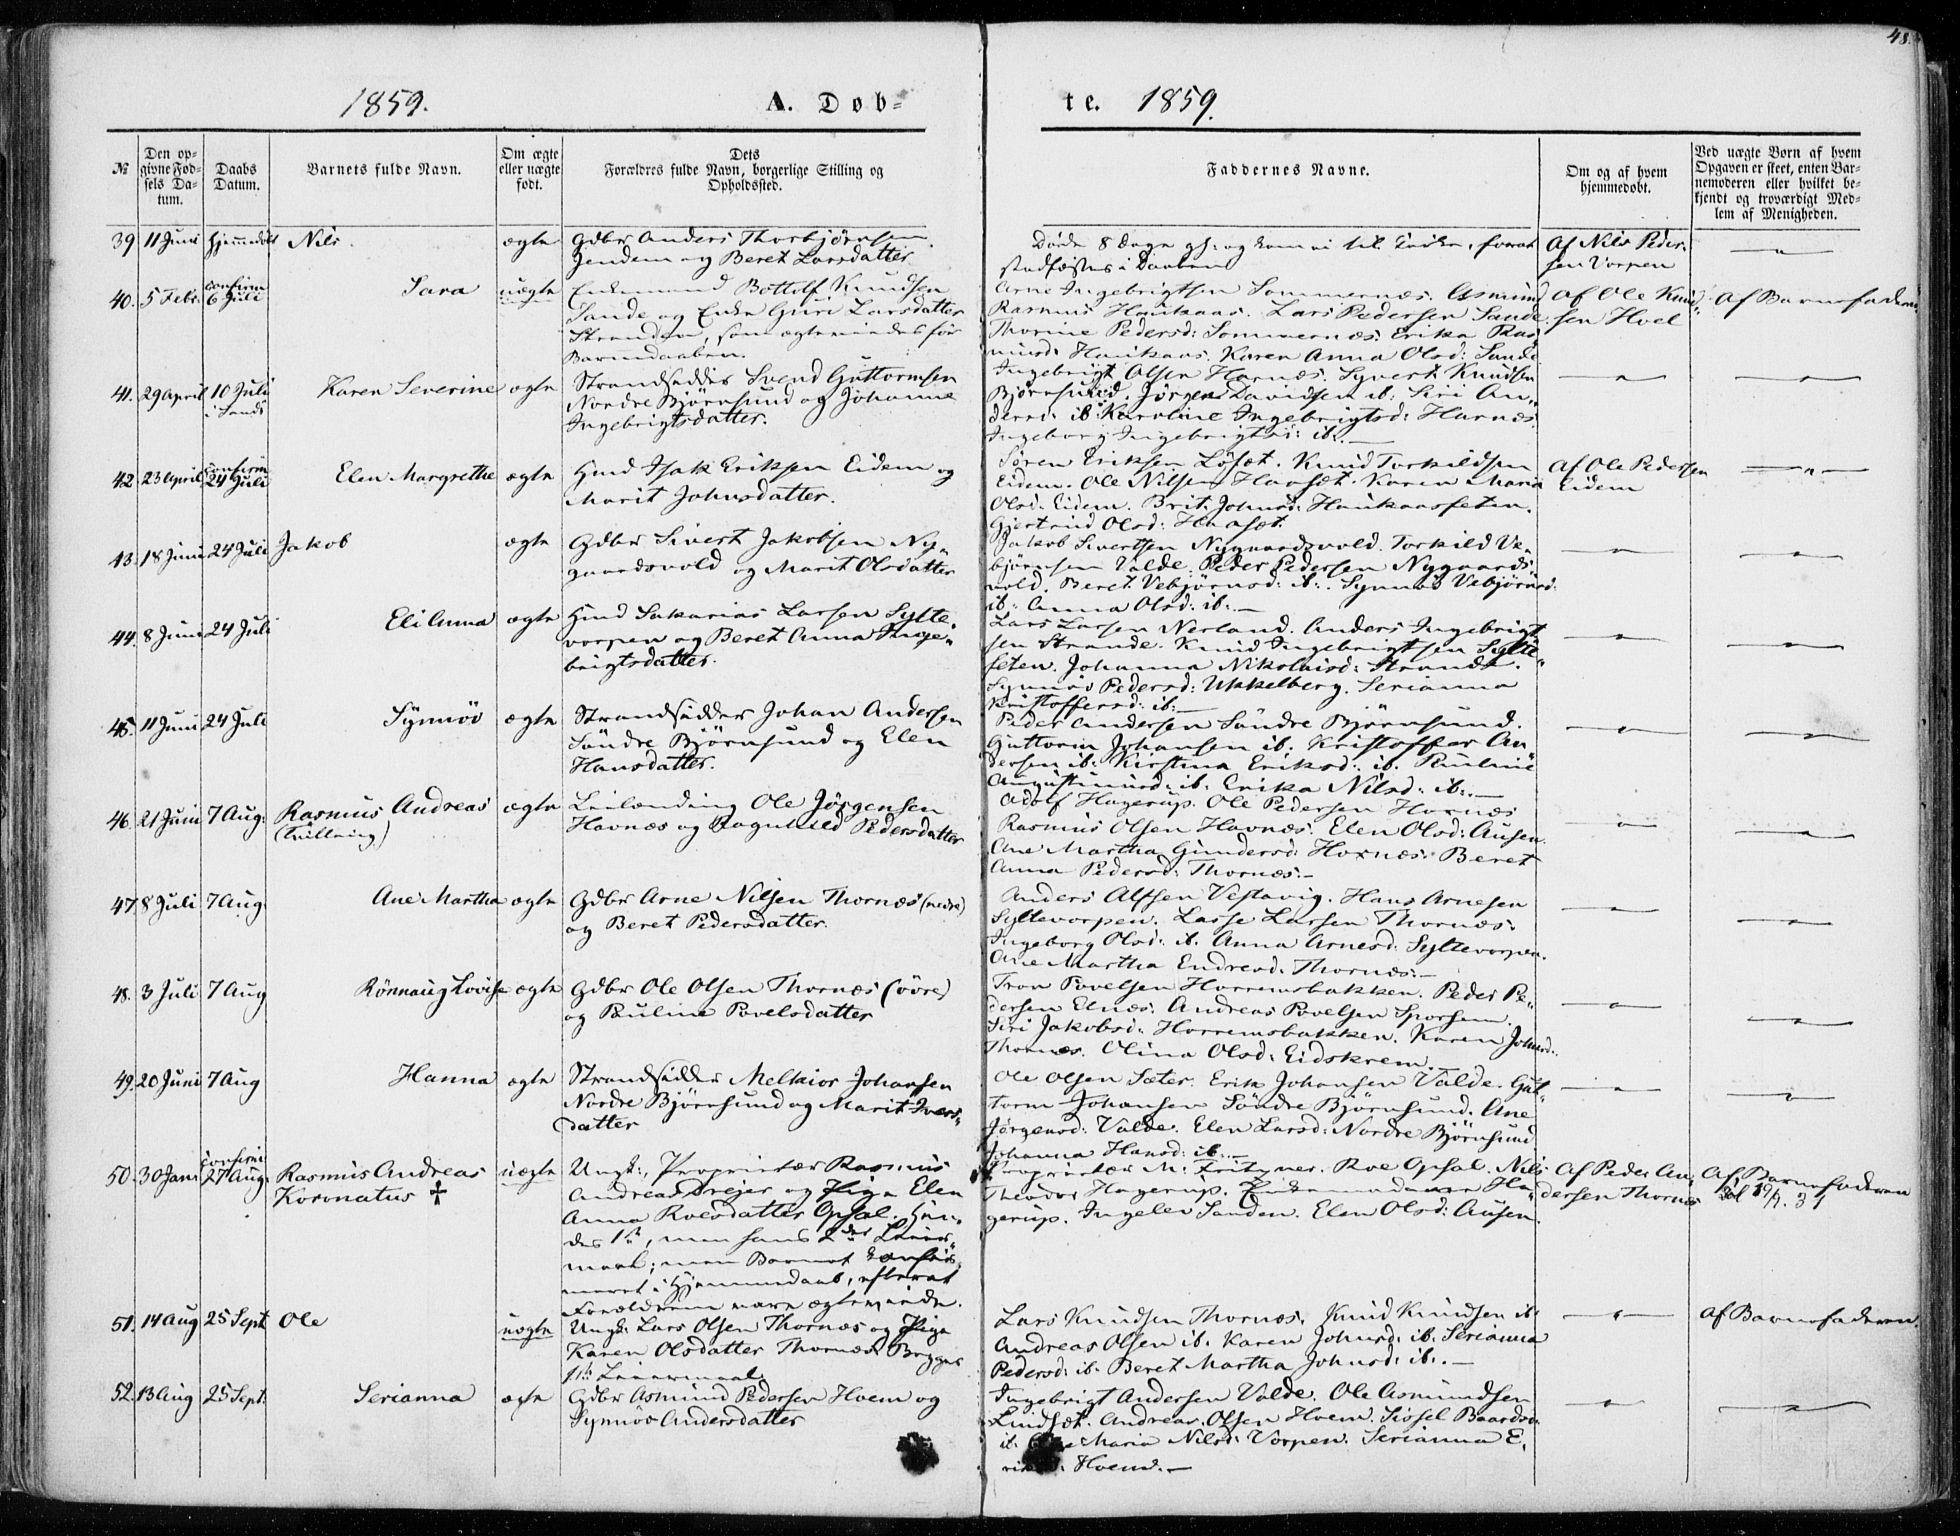 48.
1859. A. Døb-
te. 1859.
№ Den opgivne Fødsels Datum. Daabs Datum. Barnets fulde Navn. Om ægte eller uægte født. Dets Forældres fulde Navn, borgerlige Stilling og Opholdssted.
Faddernes Navne. Om og af hvem hjemmedøbt. Ved uægte Børn af hvem Opgaven er skeet, enten Barnemoderen eller hvilket bekjendt og troværdigt Medlem af Menigheden.
39 11 Juni hjemmedøbt Nils ægte Gdbr Anders Thorbjørnsen
Jendem og Beret Larsdatter
Døde 8 Dage gl: og kom ei til Kirke, forat
stadfæstes i Daaben
Af Nils Peder-
sen Vorpen
40. 5 Febr. confirm 6 Juli Sara uægte Enkemand Bottolf Knudsen
Sande og Enke Guri Larsdatter
Stranden, som ægteviedes før
Barnedaaben.
Arne Ingebrigtsen Sommernæs. Asmund
Rasmus Haukaas. Lars Pedersen Sande.
Thorine Pedersd: Sommernæs. Erika Ras
musd: Haukaas. Karen Anna Olsd: Sande
Af Ole Knud-
sen Hoel
Af Barnefaderen
41. 29 April 10 Juli i Sands Karen Severine ægte Strandsidder Svend Guttormsen
Nordre Bjørnsund og Johanne
Ingebrigtsdatter.
Ingebrigt Olsen Harnæs. Syvert Knudsen
Bjørnsund. Jørgen Davidsen ib: Siri An-
dersd: ib: Karoline Ingebrigtsd: Harnæs
Ingeborg Ingebrigtsd: ib:
42 23 April confirm 24 Juli Elen Margrethe ægte Hmd Isak Eriksen Eidem og
Marit Johnsdatter.
Søren Eriksen Løset. Knud Torkildsen
Eidem. Ole Nilsen Haaset. Karen Maria
Olsd. Eidem. Brit Johnsd: Haukaasseten.
Gjertrud Olsd: Haaset.
Af Ole Pedersen
Eidem
43. 18 Juni 24 Juli Jakob ægte Gdbr Sivert Jakobsen Ny-
gaardsvold og Marit Olsdatter
Jakob Sivertsen Nygaardsvold. Torkild Ve-
bjørnsen Valde. Peder Pedersen Nygaards-
vold. Beret Vebjørnsd: ib: Synnøv Vebjørnsd:
ib: Anna Olsd: ib:
44. 8 Juni 24 Juli Eli Anna ægte Hmd Sakarias Larsen Sylte-
vorpen og Beret Anna Inge-
brigtsdatter.
Lars Larsen Nerland. Anders Ingebrigt
sen Strande. Knud Ingebrigtsen Sylte-
seten. Johanna Nikolaisd: Strande.
Synnøv Pedersd: Ukkelberg. Serianna
Kristoffersd: ib:
45. 11 Juni 24 Juli Synnøv ægte Strandsidder Johan Andersen
Søndre Bjørnsund og Elen
Hansdatter.
Peder Andersen Søndre Bjørnsund.
Guttorm Johansen ib: Kristoffer An-
dersen ib: Kirstina Eriksd: ib. Pauline
Augustinusd: ib. Erika Nilsd: ib:
46. 21 Juni 7 Aug: Rasmus Andreas ægte Leilænding Ole Jørgensen
(tvilling) Havnæs og Ragnhild Pedersdatter
Adolf Hagerup. Ole Pedersen Havnæs
Rasmus Olsen Havnæs. Elen Olsd: Ausen.
Ane Martha Gundersd: Havnæs. Beret
Anna Pedersd: Thornæs.
47. 8 Juli 7 Aug. Ane Martha ægte Gdbr Arne Nilsen Thornæs (nedre)
og Beret Pedersdatter.
Anders Alfsen Vestavig. Hans Arnesen
Syltevorpen. Lasse Larsen Thornæs.
Ingeborg Olsd: ib. Anna Arnesd: Syltevorpen.
Ane Martha Endresd. Thornæs.
48. 3 Juli 7 Aug Rønnaug Lovise ægte Gdbr Ole Olsen Thornæs (øvre)
og Pauline Povelsdatter
Tron Povelsen Horremsbakken. Peder Pe-
dersen Elnæs. Andreas Povelsen Sporsem.
Siri Jakobsd: Horremsbakken. Karen Johnsd:
Thornæs. Olina Olsd: Eidskrem.
49. 20 Juni 7 Aug Hanna ægte Strandsidder Melkior Johansen
Nordre Bjørnsund og Marit Ivers-
datter
Ole Olsen Sæter. Erik Johansen Valde. Gut-
torm Johansen Søndre Bjørnsund. Ane
Jørgensd: Valde. Elen Larsd: Nordre Bjørnsund
Johanna Hansd: ib:
50. 30 Jani confirm 27 Aug. Rasmus Andreas uægte Ungk:, Proprietær Rasmus
Koronatus † Andreas Drejer og Pige Elen
Anna Roesdatter Opsal. Hen-
des 1ste, men hans 2det Leier-
maal; men Barnet confir-
meret i Hjemmedaab, efterat
Forældrene vare ægteviede.
Proprietær M. Fritzner. Roe Opsal. Nils
Theodor Hagerup. Ha-
gerup. Ingelev Sanden. Elen Olsd: Ausen.
Af Peder An-
dersen Thornæs
Af Barnefaderen
51. 14 Aug 25 Sept Ole uægte Ungk: Lars Olsen Thornæs og Pige
Karen Olsdatter Thornæs Brygge
1ste Leiermaal.
Lars Knudsen Thornæs. Knud Knudsen ib:
Andreas Olsen ib. Karen Johnsd: ib. Serianna
Pedersd: ib. Beret Martha Johnsd: ib:
Af Barnefaderen.
52. 13 Aug 25 Sept: Serianna ægte Gdbr Asmund Pedersen Hoem og
Synnøv Andersdatter
Ingebrigt Andersen Valde. Ole Asmundsen
Lindset. Andreas Olsen Hoem. Sissel Baardsd.
ib. Maria Nilsd: Vorpen. Serianna E-
Hoem.